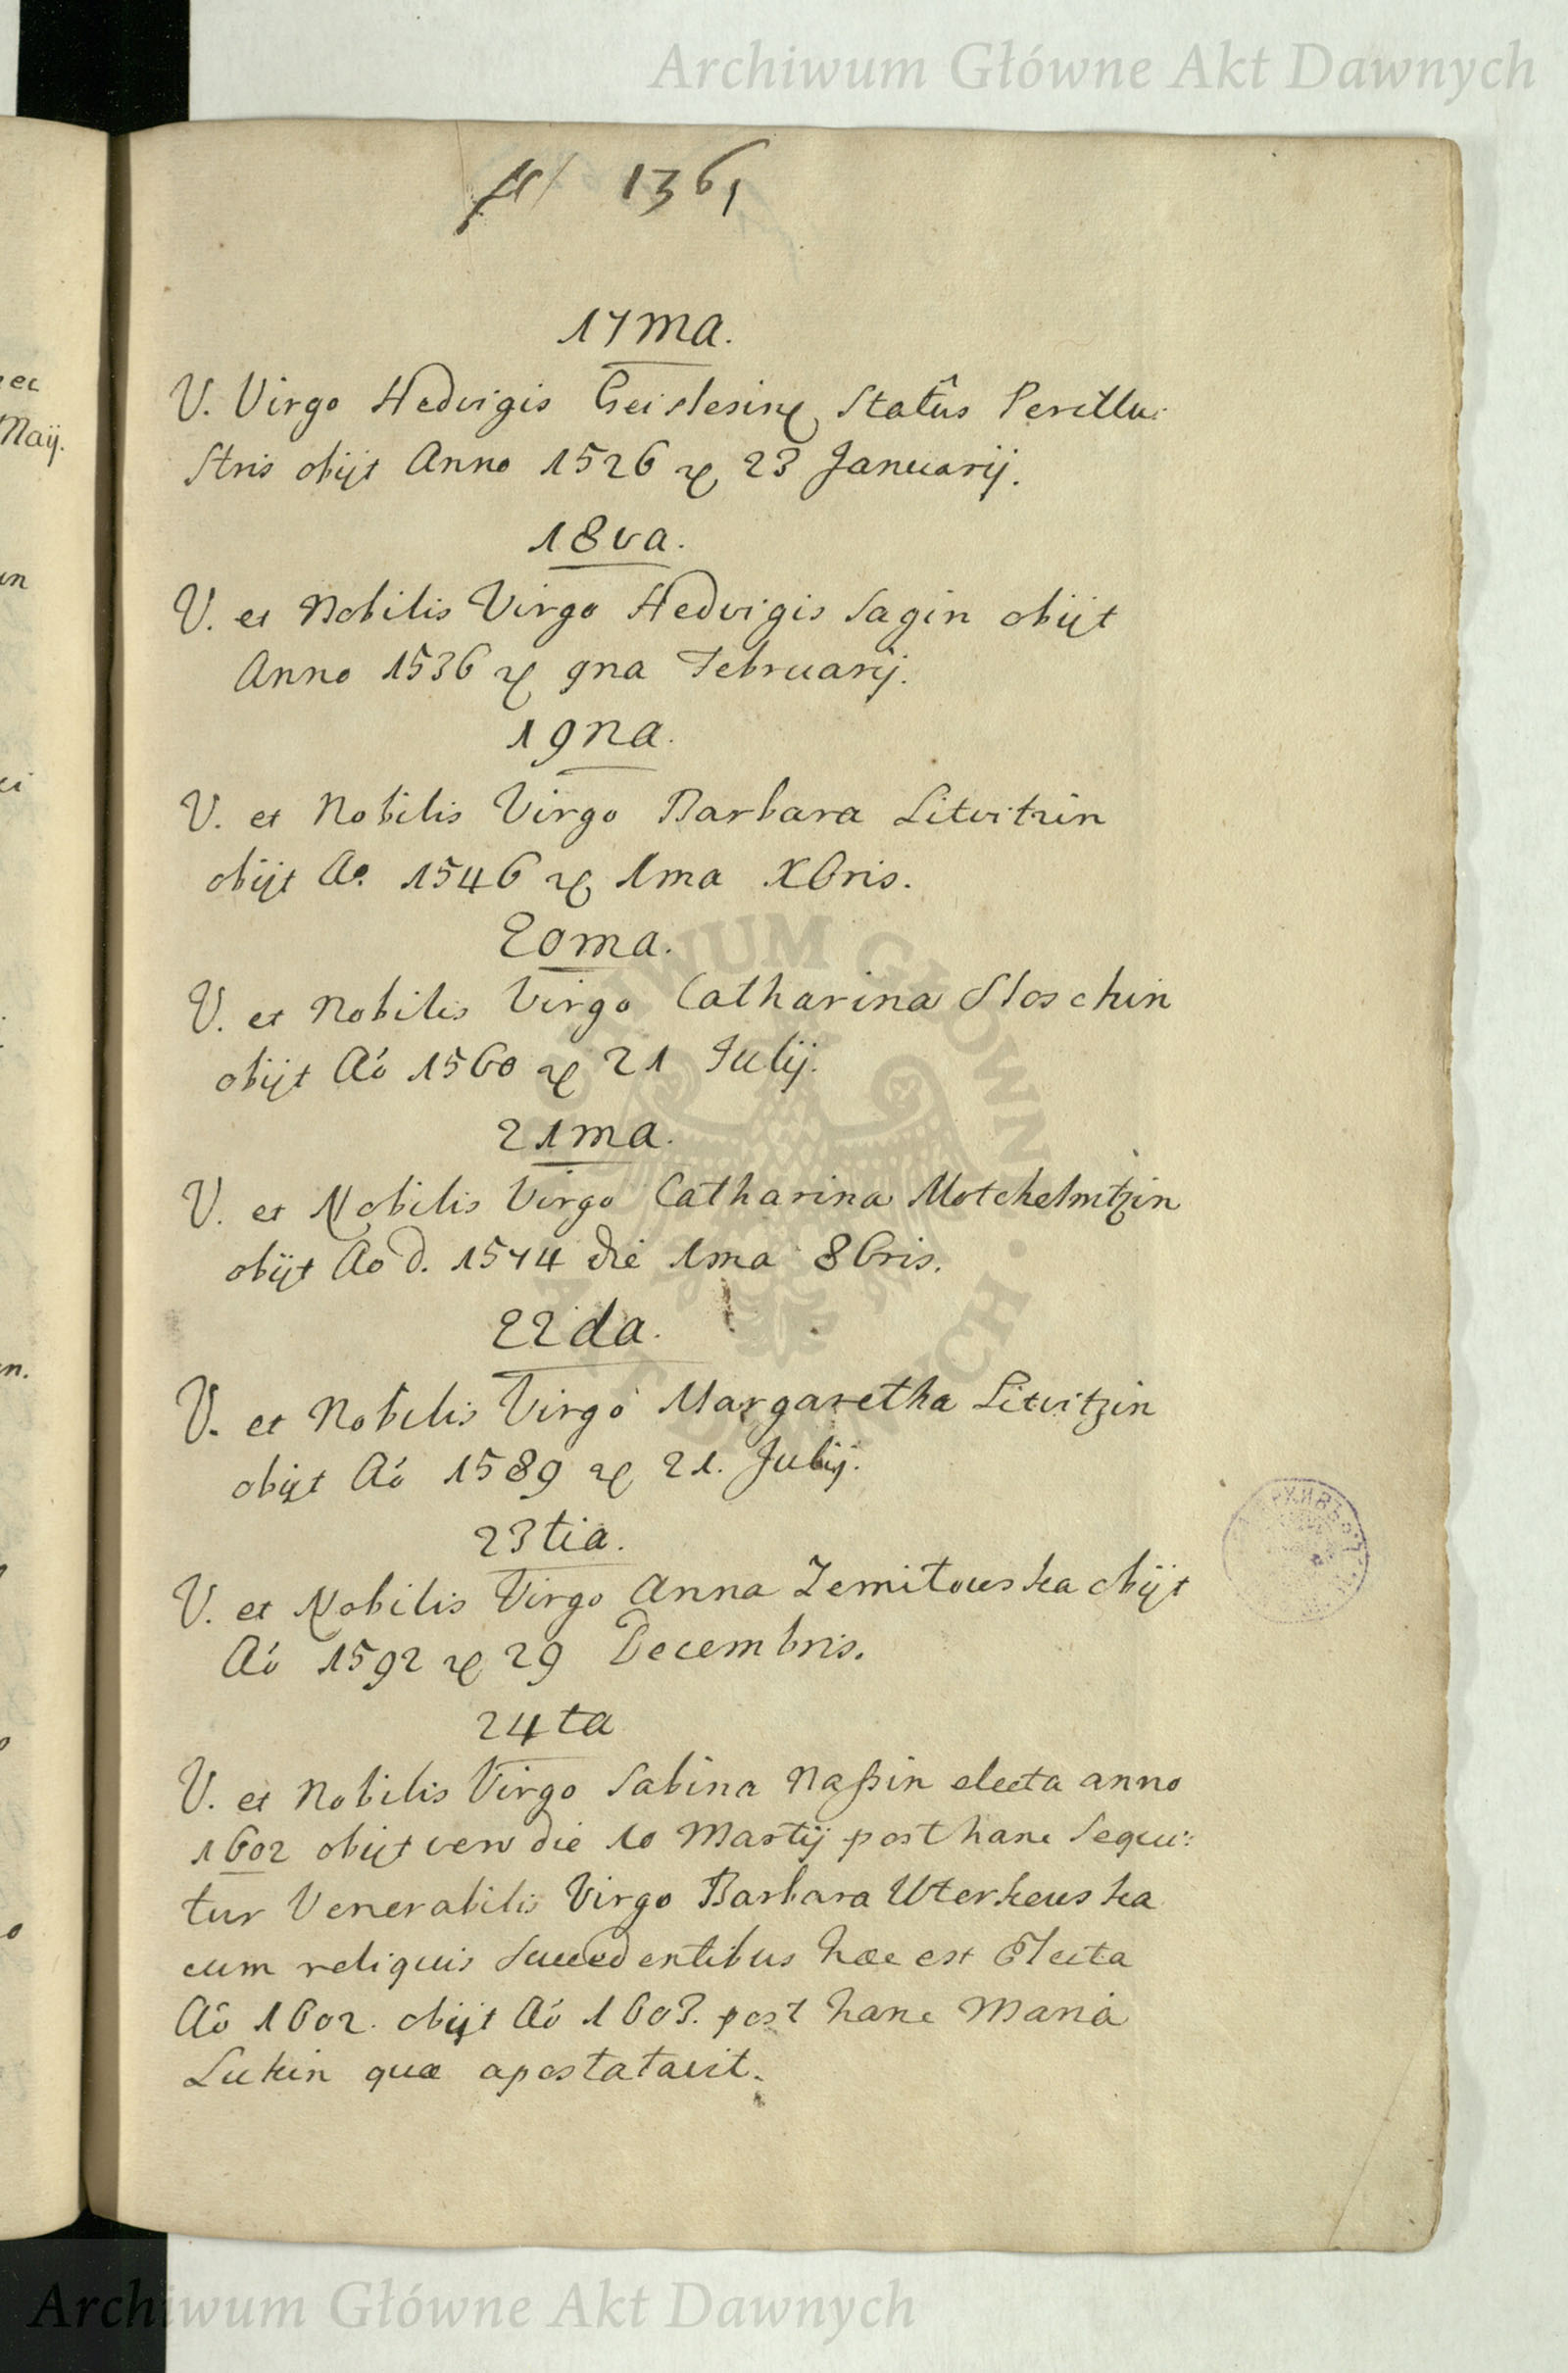 Archiwum Główne Akt Dawnych
1361
17ma.
V. Virgo Hedvigis Geislesine Statûs Perillu:
stris obijt Anno 1526 23 Januarij.
18va.
V. et Nobilis Virgo Hedvigis Sagin obijt
Anno 1536 9na Februarij.
19na.
V. et Nobilis Virgo Barbara Litvitzin
obijt Ao. 1546 1ma Xbris.
20ma.
V. et Nobilis Virgo Catharina Stoschin
obijt Aó 1560 21 Julij.
21ma.
V. et Nobilis Virgo Catharina Motchelnitzin
obijt Ao d. 1574 die 1ma 8bris.
22da.
V. et Nobilis Virgo Margaretha Litvitzin
obijt Aó 1589 21. Julij.
23tia.
V. et Nobilis Virgo Anna Zemitouska obijt
Aó 1592 29 Decembris.
24ta
V. et Nobilis Virgo Sabina Naßin electa anno
1602 obijt vero die 10 Martij post hanc Sequi:
tur Venerabilis Virgo Barbara Uterheuska
cum reliquis Succedentibus haec est Electa
Aó 1602. obijt Aó 1603. post hanc Maria
Lukin quae apostatavit.
ec
Maij.
in
ci
n.
o
ARCHIWUM GŁÓWNE AKT DAWNYCH
Archiwum Główne Akt Dawnych